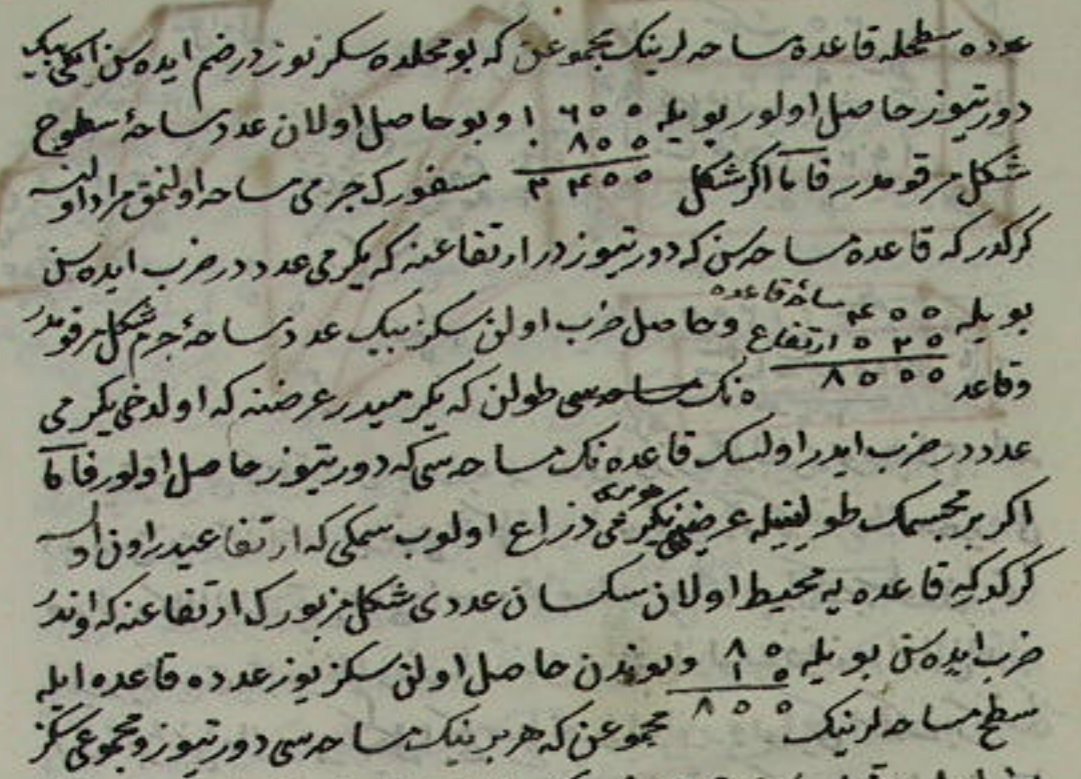 عدده سطحله قاعده مساحه لرينك مجموعن كه بو محلده سكز يوزدر ضم ايده سن ايكى بيك
دورتيوز حاصل اولور بويله ١٦٠٠ و بو حاصل اولان عدد مساحهٔ سطوح
٨٠٠
شكل مرقومدر فاما اكر شكل ٢٤٠٠ مسفورك جرمى مساحه اولنمق مراد اولنسه
كركدر كه قاعده مساحه سن كه دورتيوزدر ارتفاعنه كه يكرمى عدددر ضرب ايده سن
بويله ٤٠٠ مساحهٔ قاعده و حاصل ضرب اولن سكز بيك عدد مساحهٔ جرم شكل مرقومدر
٠٢٠ ارتفاع
وقاعد ٨٠٠٠ ه نك مساحه سى طولن كه يكرميدر عرضنه كه اولدخى يكرمى
عدددر ضرب ايدر اولسك قاعده نك مساحه سى كه دورتيوز حاصل اولور فاما
اكر بر مجسمك طوليله عرضى يكرمى ذراع اولوب سمكى كه ارتفاعيدر اون اولسه
كركدركه قاعده يه محيط اولان سكسان عددى شكل مزبورك ارتفاعنه كه اوندر
ضرب ايده سن بويله ٨٠ و بوندن حاصل اولن سكز يوز عدده قاعده ايله
١٠
سطح مساحه لرينك ٨٠٠ مجموعن كه هر برينك مساحه سى دورتيوز و مجموعى سكز